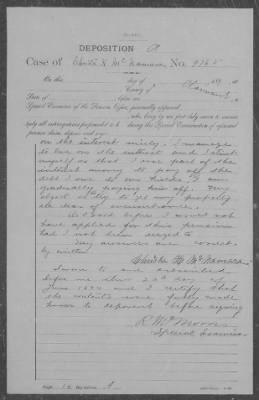 DEPOSITION A
Case of Christe H. McNamara, No.
On this day of
County of
State of, before me
Special Examiner of the Pension Office, personally appeared
who, being by me first duly sworn to answer
truly all interrogatories propounded to during this Special Examination of aforesaid
pension claim, deposes and says:
on the interest money. I manage
to live on its interest and I stint
myself so that I use part of the
interest money to pay off the
debt I owe
gradually paying him off. My
object is to get my property
free clear of incumbrance.
As I said before I would not
have applied for this pension
had I not been urged to.
My answers are correctly
written.
Christe H. McNamara
Sworn to and subscribed
before me this 28 day of
June 1894 and I certify that
the contents were fully made
known to deponent before signing
Special Examiner
Page 12 Deposition A